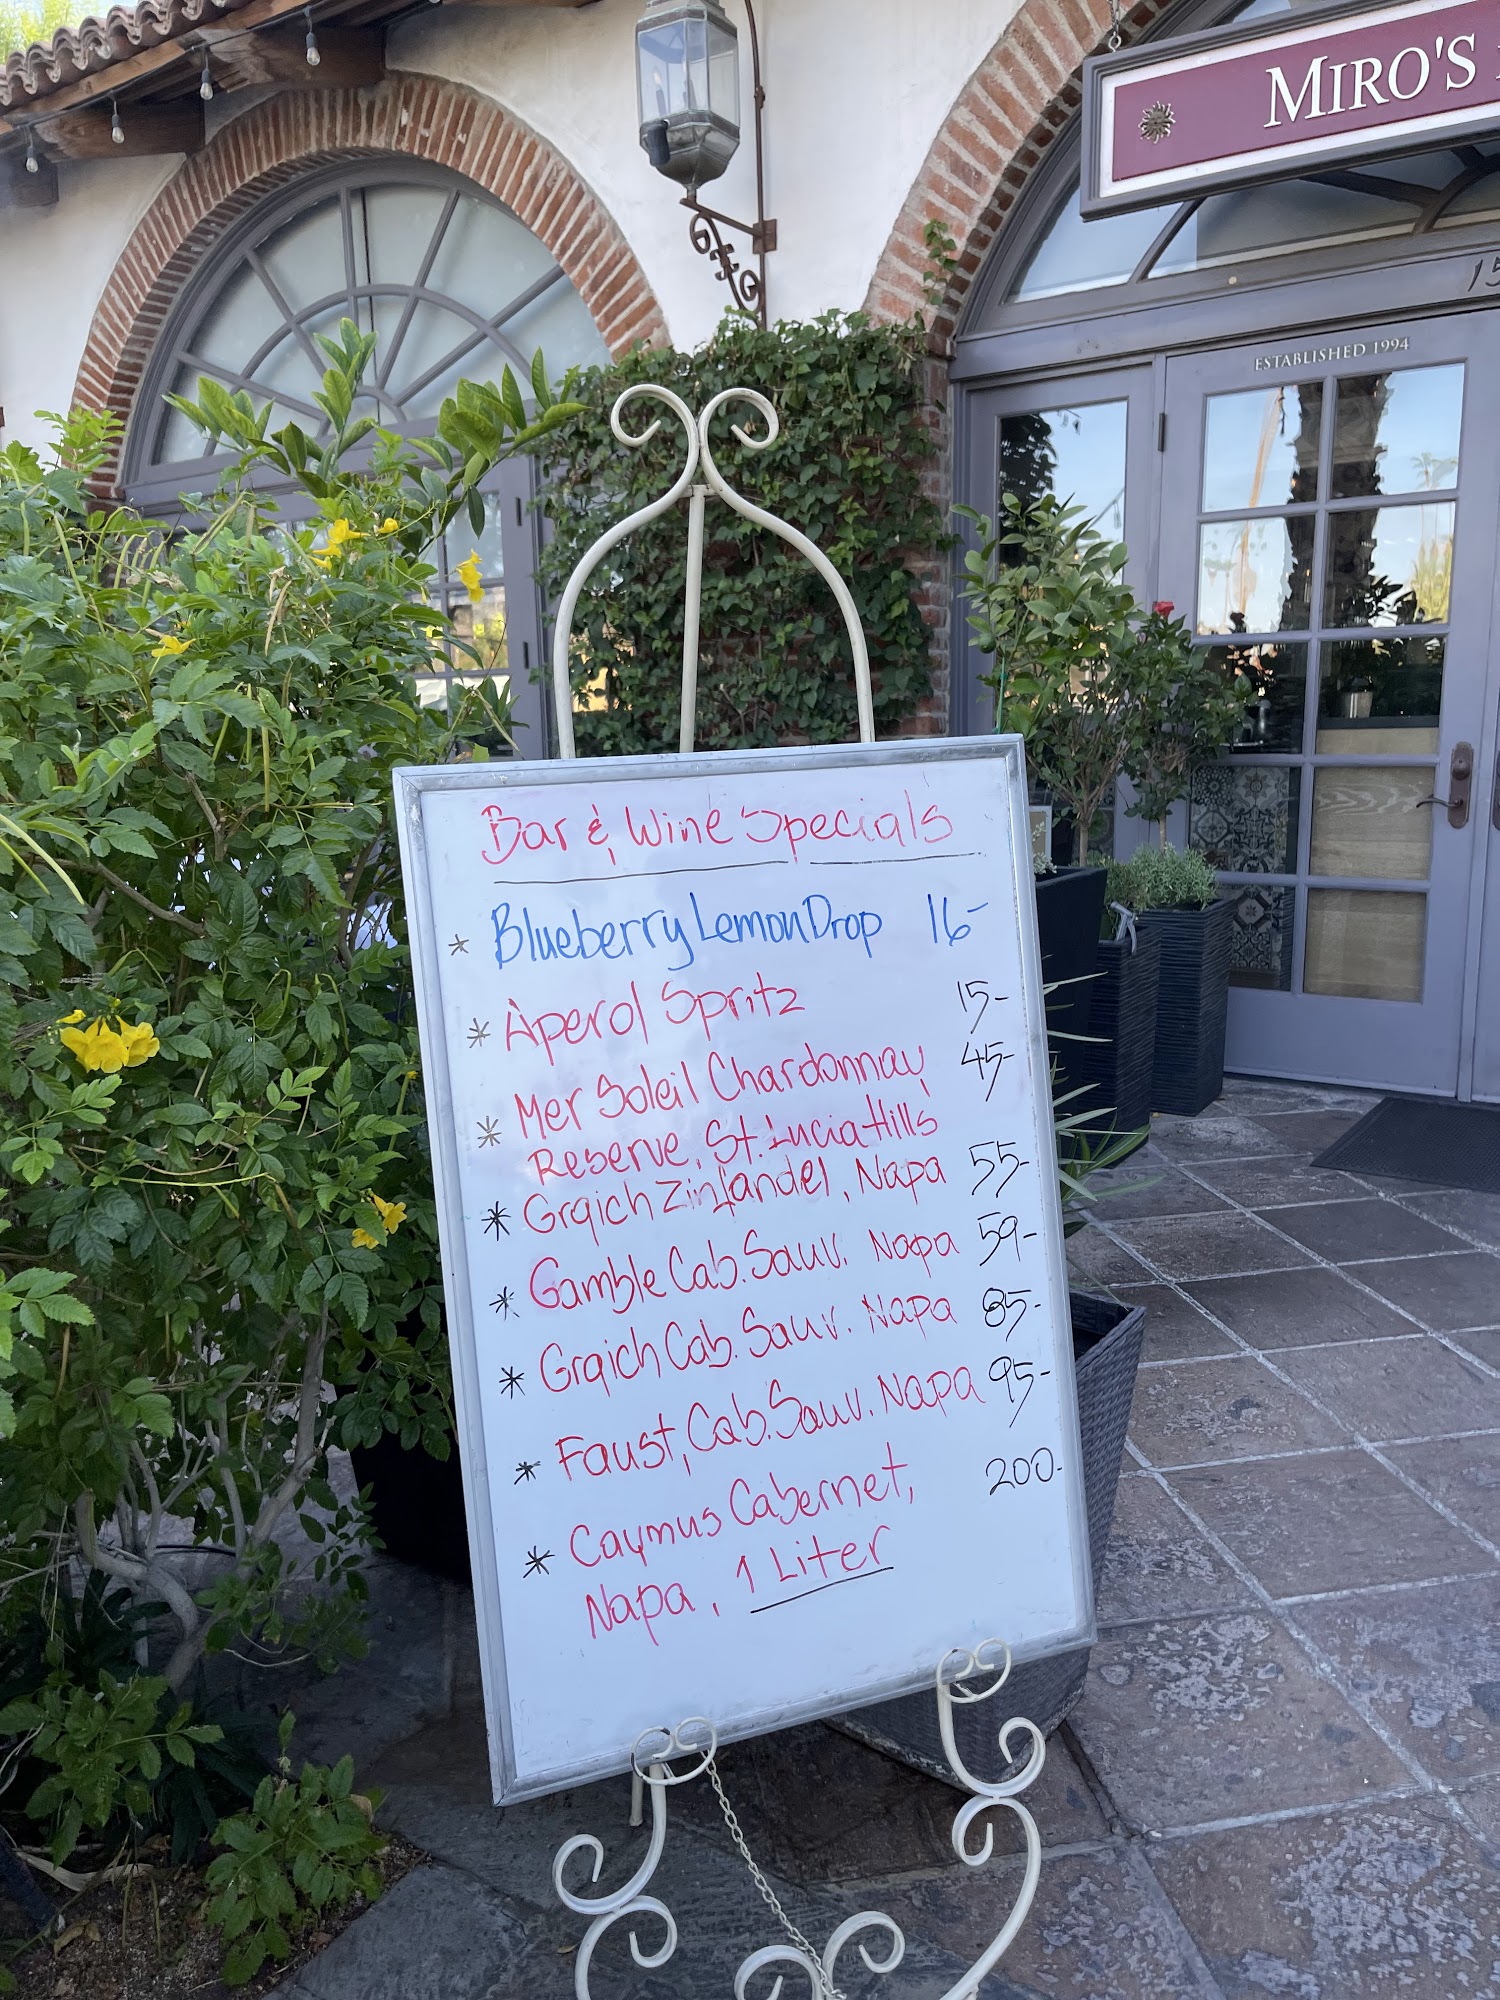 MIRO'S
ESTABLISHED 1994
Bar & Wine Specials
* Blueberry Lemon Drop 16-
* Aperol Spritz 15-
* Mer Soleil Chardonnay, 45-
Reserve, St. Lucia Hills
* Grgich Zinfandel, Napa 55-
* Gamble Cab. Sauv. Napa 59-
* Grgich Cab. Sauv. Napa 85-
* Faust, Cab. Sauv. Napa 95-
* Caymus Cabernet, 200-
Napa, 1 Liter